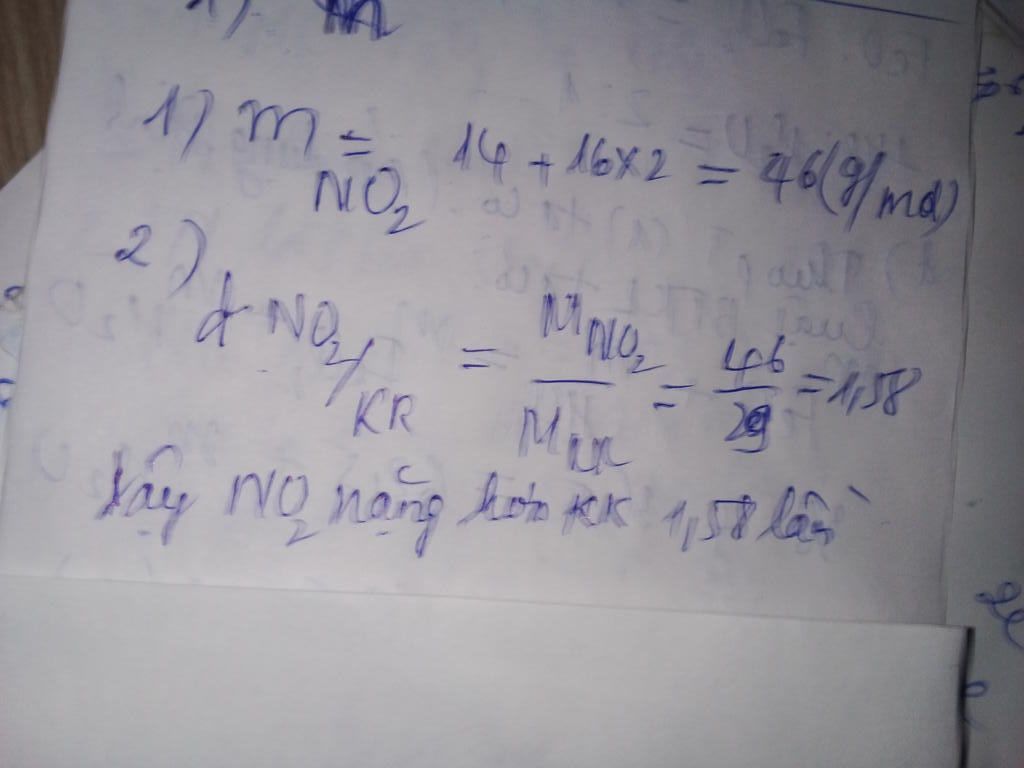 1) m
1) m NO2 = 14 + 16x2 = 46 (g/mol)
2)
d NO2/KK = MNO2/MKK = 46/29 = 1,58
Vậy NO2 nặng hơn KK 1,58 lần